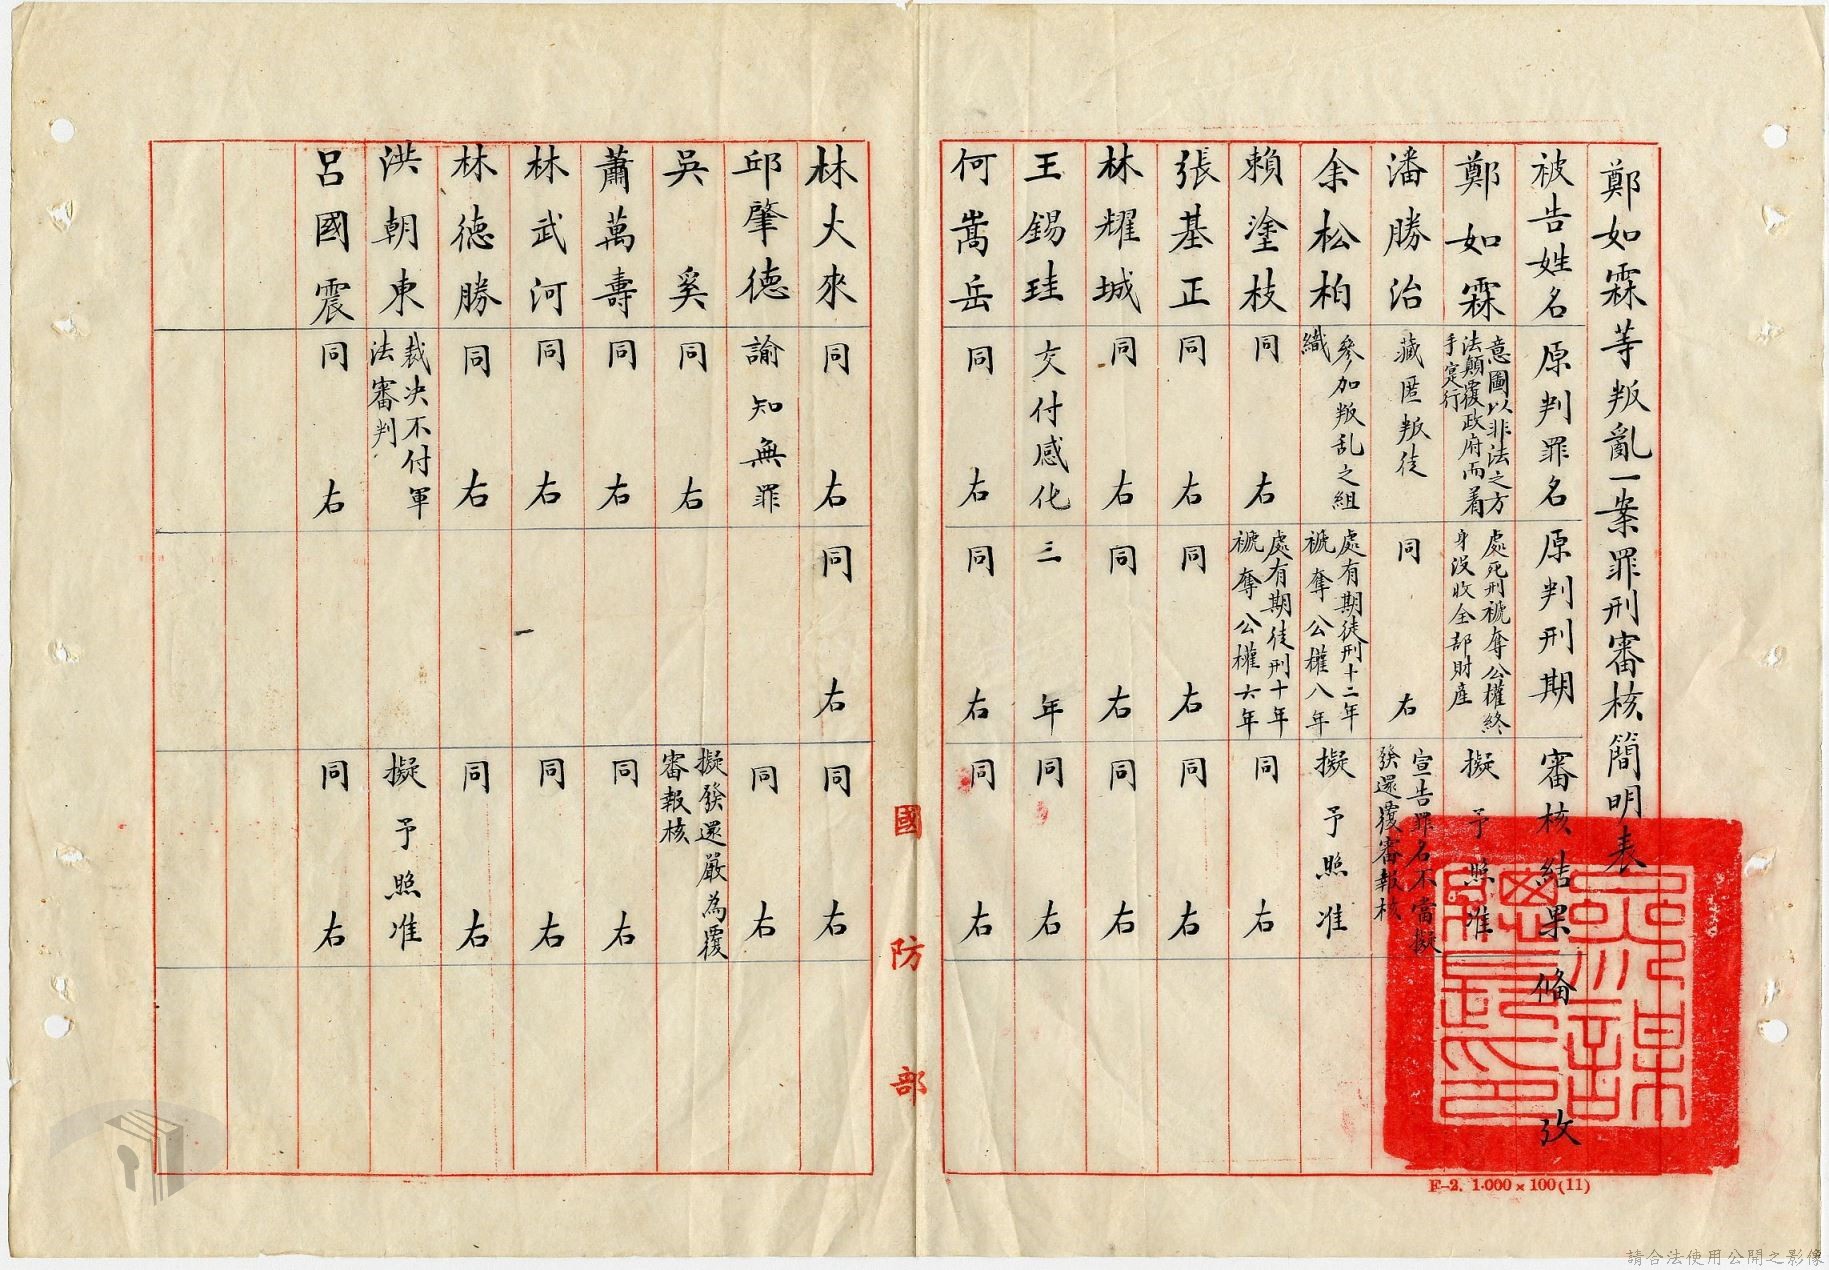 鄭如霖等叛亂一案罪刑審核簡明表
被告姓名 原判罪名 原判刑期 審核結果 備 攷
鄭如霖 意圖以非法之方法顛覆政府而着手實行 處死刑褫奪公權終身沒收全部財產 擬予照准
潘勝治 藏匿叛徒 同右 宣告罪名不當擬發還覆審報核
余松柏 參加叛乱之組織 處有期徒刑十二年褫奪公權八年 擬予照准
賴塗枝 同右 處有期徒刑十年褫奪公權六年 同右
張基正 同右 同右 同右
林耀城 同右 同右 同右
王錫珪 交付感化 三年 同右
何嵩岳 同右 同右 同右
國防部
林火來 同右 同右 同右
邱肇德 諭知無罪 同右
吳奚 同右 擬發還嚴為覆審報核
蕭萬壽 同右 同右
林武河 同右 同右
林德勝 同右 同右
洪朝東 裁决不付軍法審判 擬予照准
呂國震 同右 同右
參謀總長之印
F-2. 1.000×100(11)
請合法使用公開之影像